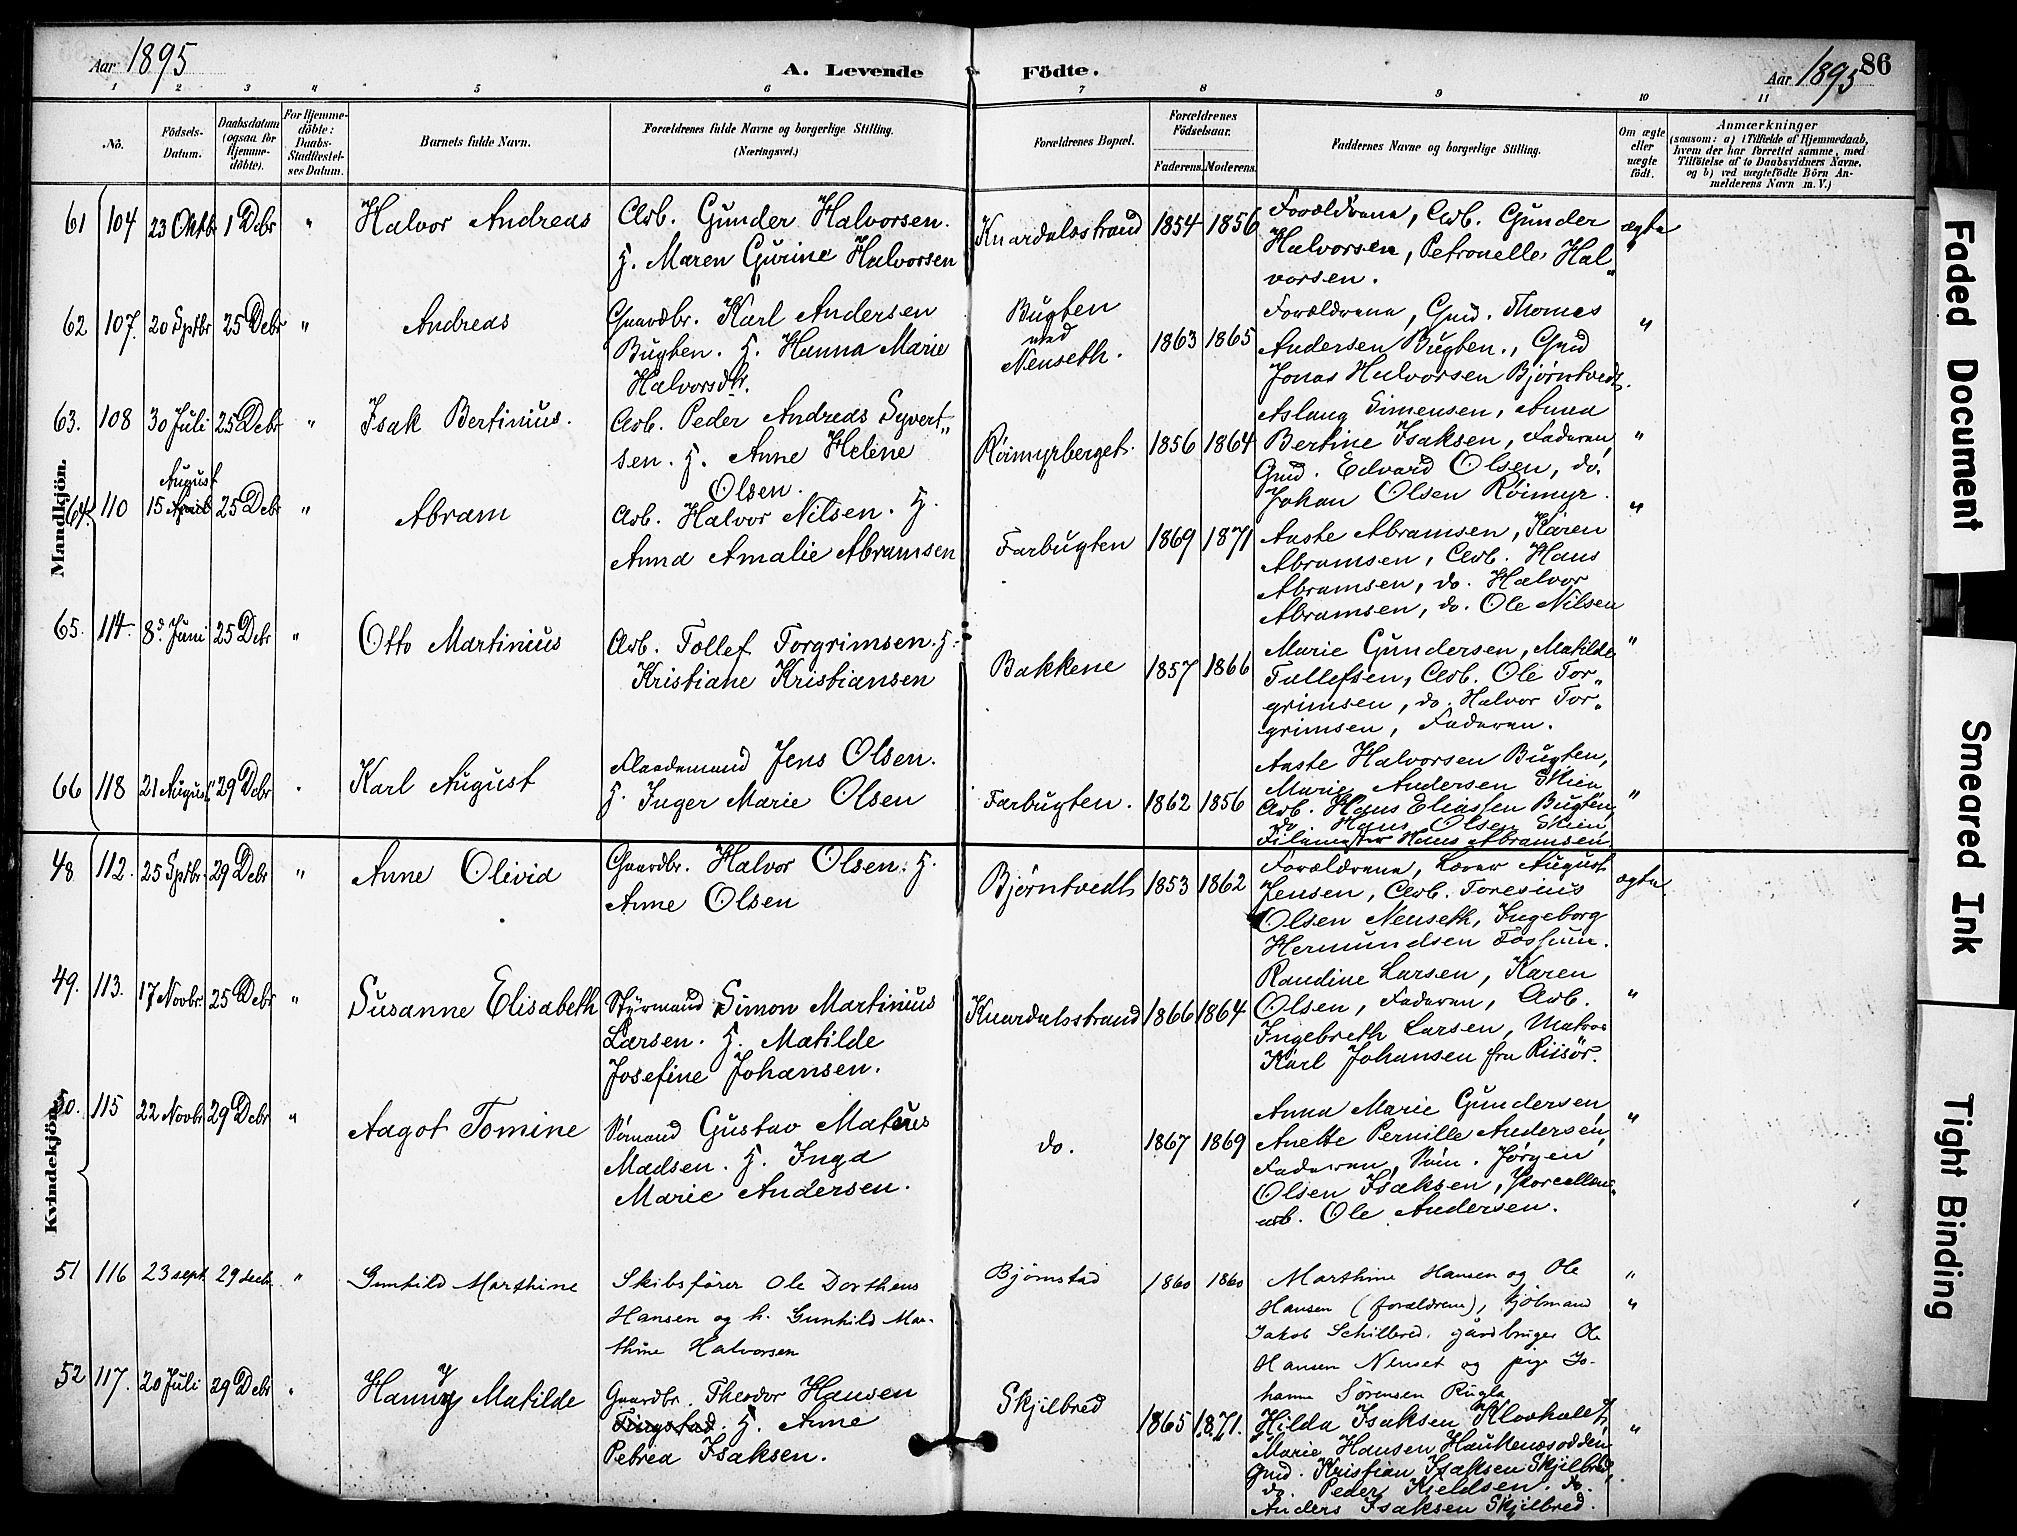 Aar 1895
A. Levende Födte.
Aar 1895
86
1 2 3 4 5 6 7 8 9 10 11
No.
Födsels-
Datum.
Daabsdatum
(ogsaa for
Hjemme-
döbte).
For Hjemme-
döbte:
Daabs-
Stadfæstel-
ses Datum.
Barnets fulde Navn.
Forældrenes fulde Navne og borgerlige Stilling.
(Næringsvei.)
Forældrenes Bopæl.
Forældrenes
Födselsaar.
Faderens. Moderens.
Faddernes Navne og borgerlige Stilling.
Om ægte
eller
uægte
født.
Anmærkninger
(saasom: a) i Tilfælde af Hjemmedaab,
hvem der har forrettet samme, med
Tilföielse af to Daabsvidners Navne,
og b) ved uægtefödte Börn An-
melderens Navn m. V.)
Mandkjön.
61 104 23 Oktb 1 Debr " Halvor Andreas
Arb. Gunder Halvorsen.
H. Maren Gurine Halvorsen
Knardalsstrand 1854 1856
Forældrene, Arb. Gunder
Halvorsen, Petronelle Hal"
vorsen.
ægte
62 107. 20 Sptbr 25 Debr " Andreas
Gaardbr. Karl Andersen
Bugten. H. Hanna Marie
Halvorsdtr.
Bugten
ned
Nenseth.
1863 1865
Forældrene, Gmd. Thomas
Andersen Bugten., Gmd
Jonas Halvorsen Bjørntvedt.
"
63. 108 30 Juli 25 Debr " Isak Bertinius.
Arb. Peder Andreas Syvert"
sen. H. Anne Helene
Olsen.
Røimyrberget. 1856 1864
Aslaug Simensen, Anna
Bertine Isaksen, Faderen,
Gmd. Edvard Olsen, do.
Johan Olsen Røimyr.
"
64. 110 August
15 April 25 Debr " Abram
Arb. Halvor Nilsen. H.
Anna Amalie Abramsen
Farbugten 1869 1871
Aaste Abramsen, Karen
Abramsen, Arb. Hans
Abramsen, do. Halvor
Abramsen, do. Ole Nilsen
"
65. 114. 8d. Juni 25 Debr " Otto Martinius
Arb. Tollef Torgrimsen. H.
Kristiane Kristiansen
Bakkene 1857 1866
Marie Gundersen, Matilde
Tollefsen, Arb. Ole Tor"
grimsen, do. Halvor Tor"
grimsen, Faderen.
"
66 118 21 August 29 Debr " Karl August
Flaademand Jens Olsen.
H. Inger Marie Olsen
Farbugten. 1862 1856
Aaste Halvorsen Bugten,
Marie Andersen Skien
Arb. Hans Eliassen Bugten,
do Hans Olsen Skien
Hans Abramsen
"
Kvindekjön.
48 112. 25 Sptbr. 29 Debr " Anne Olivia
Gaardbr. Halvor Olsen. H.
Anne Olsen
Bjørntvedt 1853 1862
Forældrene, Lærer August
Jensen, Arb. Toresius
Olsen Nenseth, Ingeborg
Hermundsen Fossum.
ægte
49. 113. 17 Novbr. 25 Debr " Susanne Elisabeth
Styrmand Simon Martinius
Larsen. H. Matilde
Josefine Johansen.
Knardalsstrand 1866 1864
Randine Larsen, Karen
Olsen, Faderen, Arb.
Ingebreth Larsen, Matros
Karl Johansen fra Riisör.
"
50. 115 22 Novbr 29 Debr " Aagot Tomine
Sömand Gustav Mateus
Madsen. H. Inga
Marie Andersen.
do. 1867 1869
Anna Marie Gundersen,
Anette Pernille Andersen,
Faderen, Söm. Jørgen
Olsen Isaksen, Porcellæns"
arb. Ole Andersen.
"
51 116 23 sept 29 decb " Gunhild Marthine
Skibsfører Ole Dorthens
Hansen og h. Gunhild Mar-
thine Halvorsen
Bjørnstad 1860 1860
Marthine Hansen og Ole
Hansen (forældrene), kjøbmand
Jakob Schilbred. gårdbruger Ole
Hansen Nenset og pige Jo-
hanne Sørensen Rugla
"
"
52 117. 20 Juli 29 Debr " Hanny Matilde
Gaardbr. Theodor Hansen
Tingstad. H. Anne
Petrea Isaksen.
Skjilbred
1865 1871.
Hilda Isaksen Kloskalet,
Marie Hansen Haukenæsodden
Gmd. Kristian Isaksen Skjilbred,
do. Peder Kjeldsen. do.
Anders Isaksen Skjilbred.
"
Faded Document
Smeared Ink
Tight Binding